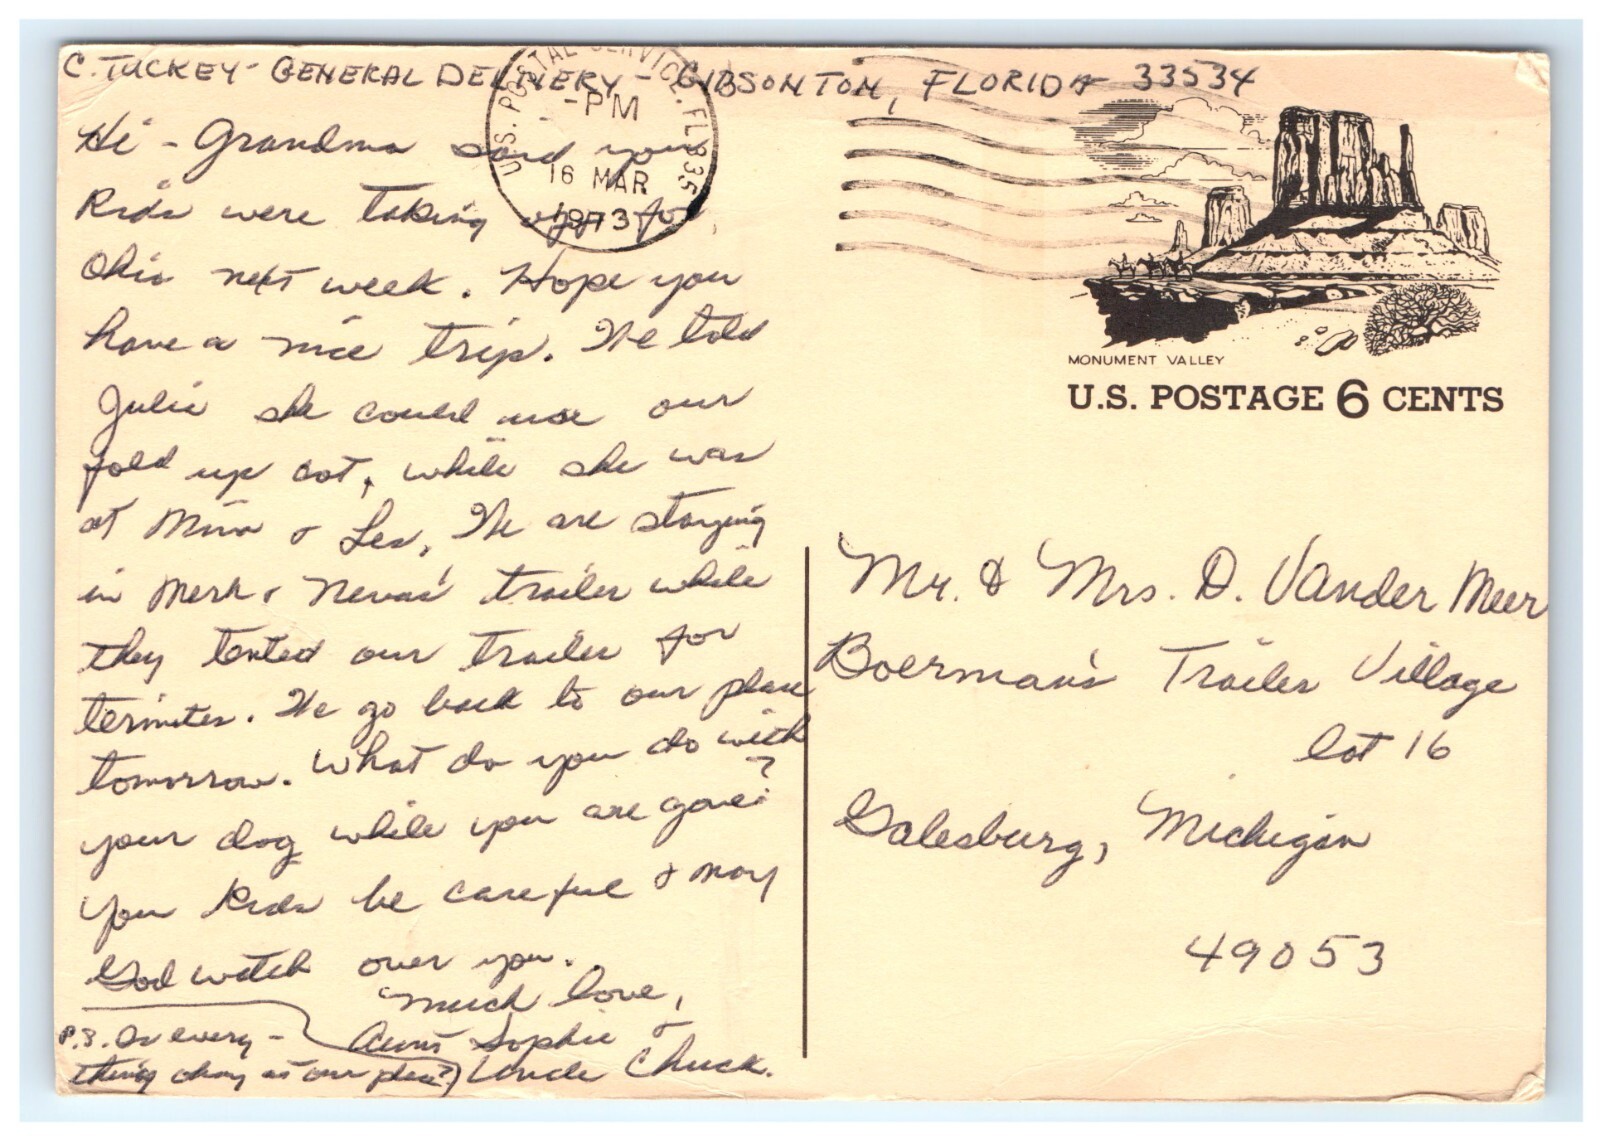 C. TUCKEY - GENERAL DELIVERY - GIBSONTON, FLORIDA 33534
U.S. POSTAL SERVICE. FL 335
-PM
16 MAR
1973
Hi - Grandma said you
Kids were taking off for
Ohio next week. Hope you
have a nice trip. We told
Julie she could use our
fold up cot, while she was
at Min & Les. We are staying
in Merk & Neva's trailer while
they tented our trailer for
termites. We go back to our place
tomorrow. What do you do with
your dog while you are gone?
You Kids be careful & may
God watch over you.
Much love,
Aunt Sophie &
Uncle Chuck.
P.S. Is every-
thing okay at our place?)
MONUMENT VALLEY
U.S. POSTAGE 6 CENTS
Mr. & Mrs. D. Vander Meer
Boerman's Trailer Village
lot 16
Galesburg, Michigan
49053